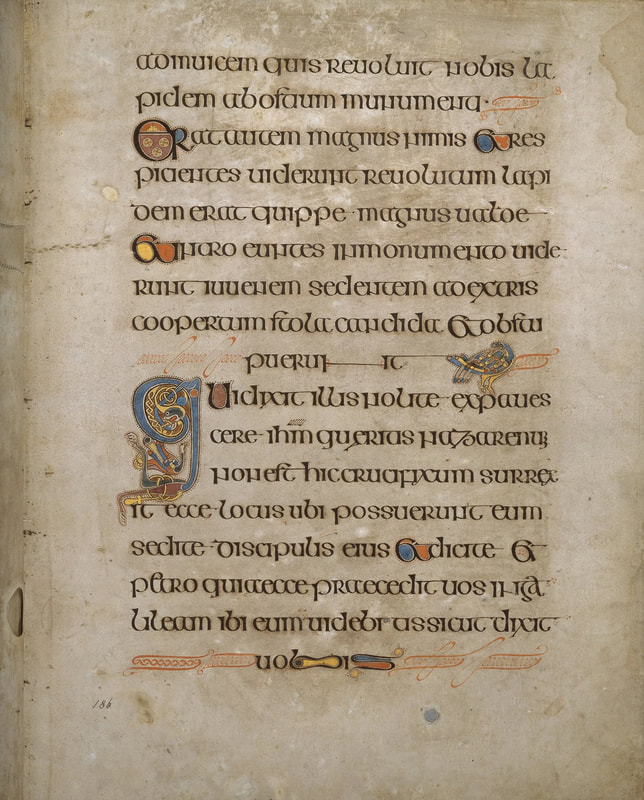 adinuicem quis reuoluit nobis la
pidem abostium munumenti
Erat autem magnus nimis Et res
picientes uiderunt reuolutum lapi
dem erat quippe magnus ualde
Et intro euntes inmonumento uide
runt iuuenem sedentem adextris
coopertum stola candida Et obstu
puerunt
Qui dixit illis nolite expaues
cere ihm queritis nazarenum
non est hic crucifixum surrex
it ecce locus ubi possuerunt eum
sed ite discipulis eius Et dicite Et
petro quia ecce praecedit uos inga
lileam ibi eum uidebitis sicut dixit
uobis
186